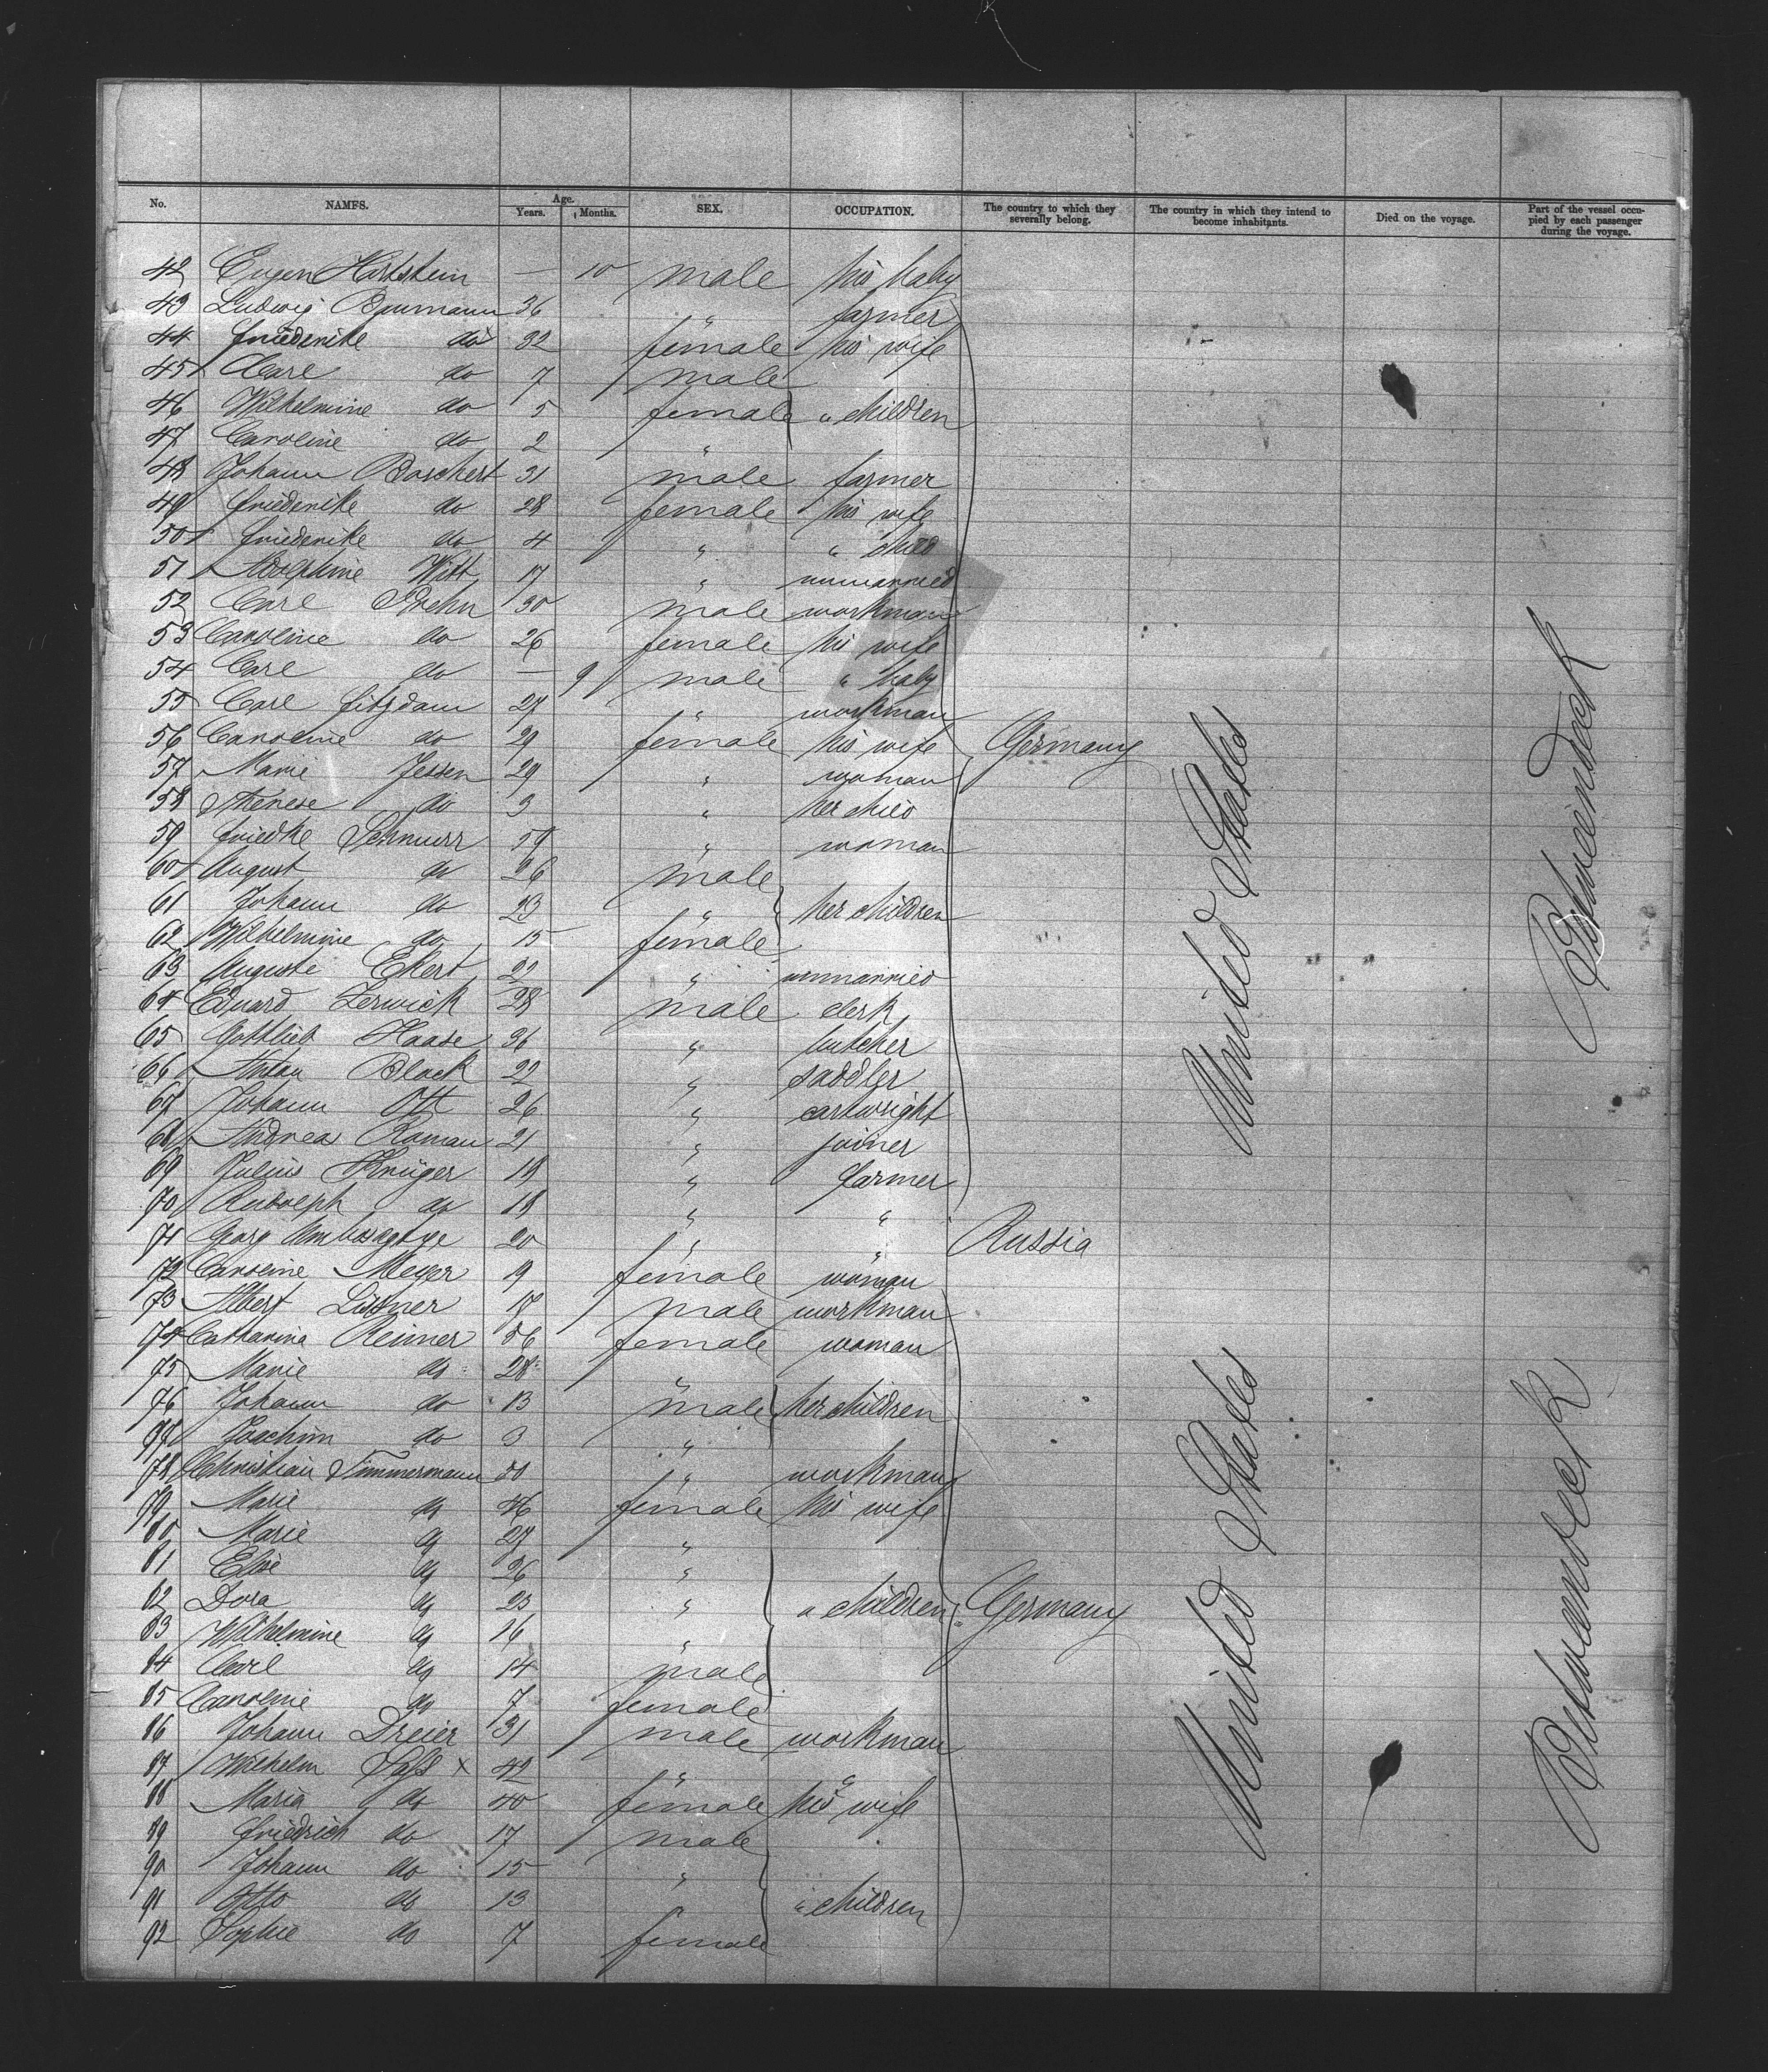 No. NAMES. Age. Years. Months. SEX. OCCUPATION. The country to which they severally belong. The country in which they intend to become inhabitants. Died on the voyage. Part of the vessel occupied by each passenger during the voyage.
42 Eugen Hartstein — 10 male his baby
43 Ludwig Baumann 36 " farmer
44 Friederike do 32 female his wife
45 Carl do 7 male
46 Wilhelmine do 5 female " children
47 Caroline do 2 "
48 Johann Borchert 31 male farmer
49 Friederike do 28 female his wife
50 Friederike do 4 " " child
51 Adolphine Witt 17 " unmarried
52 Carl 30 male workman
53 Caroline do 26 female his wife
54 Carl do — 9 male " baby
55 Carl 27 " workman
56 Caroline do 29 female his wife Germany
57 Marie Jessen 29 " woman
58 Therese do 3 " her child
59 Friedke Schnurr 59 " woman
60 August do 26 male
61 Johann do 23 " her children
62 Wilhelmine do 15 female
63 Auguste Ekert 22 " unmarried
64 Eduard Lerwick 28 male clerk
65 Gottlieb Haase 36 " butcher
66 Anton Block 22 " saddler
67 Johann Ott 26 " cartwright
68 Andreas 21 " joiner
69 Julius Krüger 18 " farmer
70 Rudolph do 18 " "
71 Georg 20 " " Russia
72 Caroline Meyer 19 female woman
73 Albert Lissner 17 male workman
74 Catharina Reimer 56 female woman
75 Marie do 28 "
76 Johann do 13 male her children
77 Joachim do 3 "
78 Christian Timmermann 50 " workman
79 Marie do 46 female his wife
80 Marie do 27 "
81 Elise do 26 "
82 Dora do 23 " " children Germany
83 Wilhelmine do 16 "
84 Carl do 14 male
85 Caroline do 7 female
86 Johann Dreier 31 male workman
87 Wilhelm Saß x 42 " "
88 Maria do 40 female his wife
89 Friedrich do 17 male
90 Johann do 15 "
91 Otto do 13 " " children
92 Sophie do 7 female
United States
Betweendeck
United States
Betweendeck